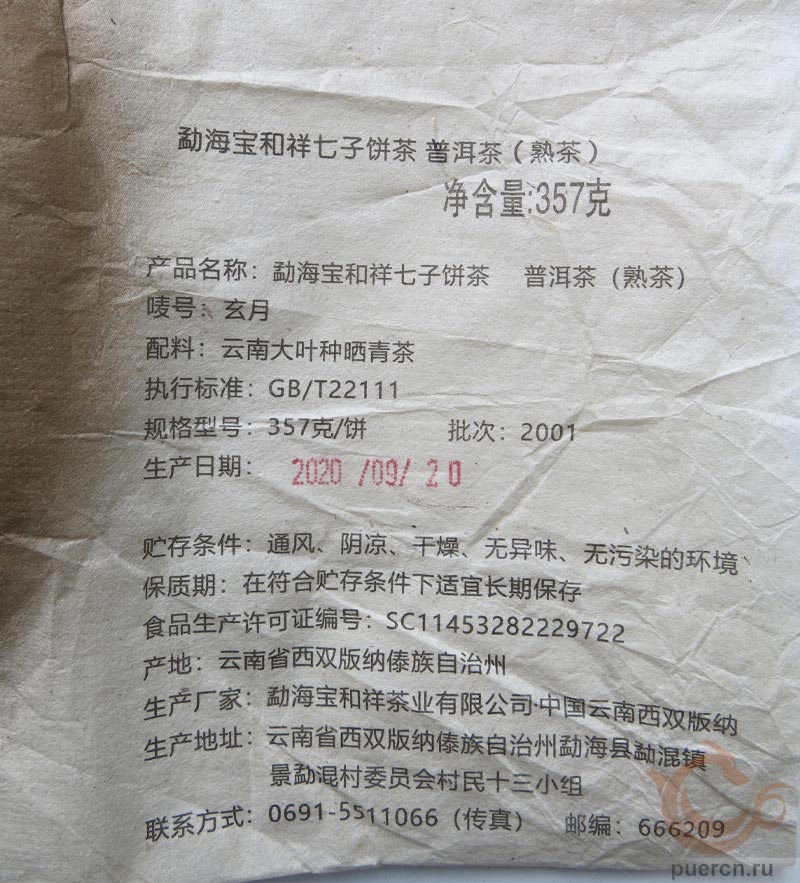 勐海宝和祥七子饼茶 普洱茶（熟茶）
净含量:357克
产品名称：勐海宝和祥七子饼茶 普洱茶（熟茶）
唛号：玄月
配料：云南大叶种晒青茶
执行标准：GB/T22111
规格型号：357克/饼 批次：2001
生产日期： 2020 /09/ 20
贮存条件：通风、阴凉、干燥、无异味、无污染的环境
保质期：在符合贮存条件下适宜长期保存
食品生产许可证编号：SC11453282229722
产地：云南省西双版纳傣族自治州
生产厂家：勐海宝和祥茶业有限公司·中国云南西双版纳
生产地址：云南省西双版纳傣族自治州勐海县勐混镇
景勐混村委员会村民十三小组
联系方式：0691-5511066（传真） 邮编：666209
puercn.ru